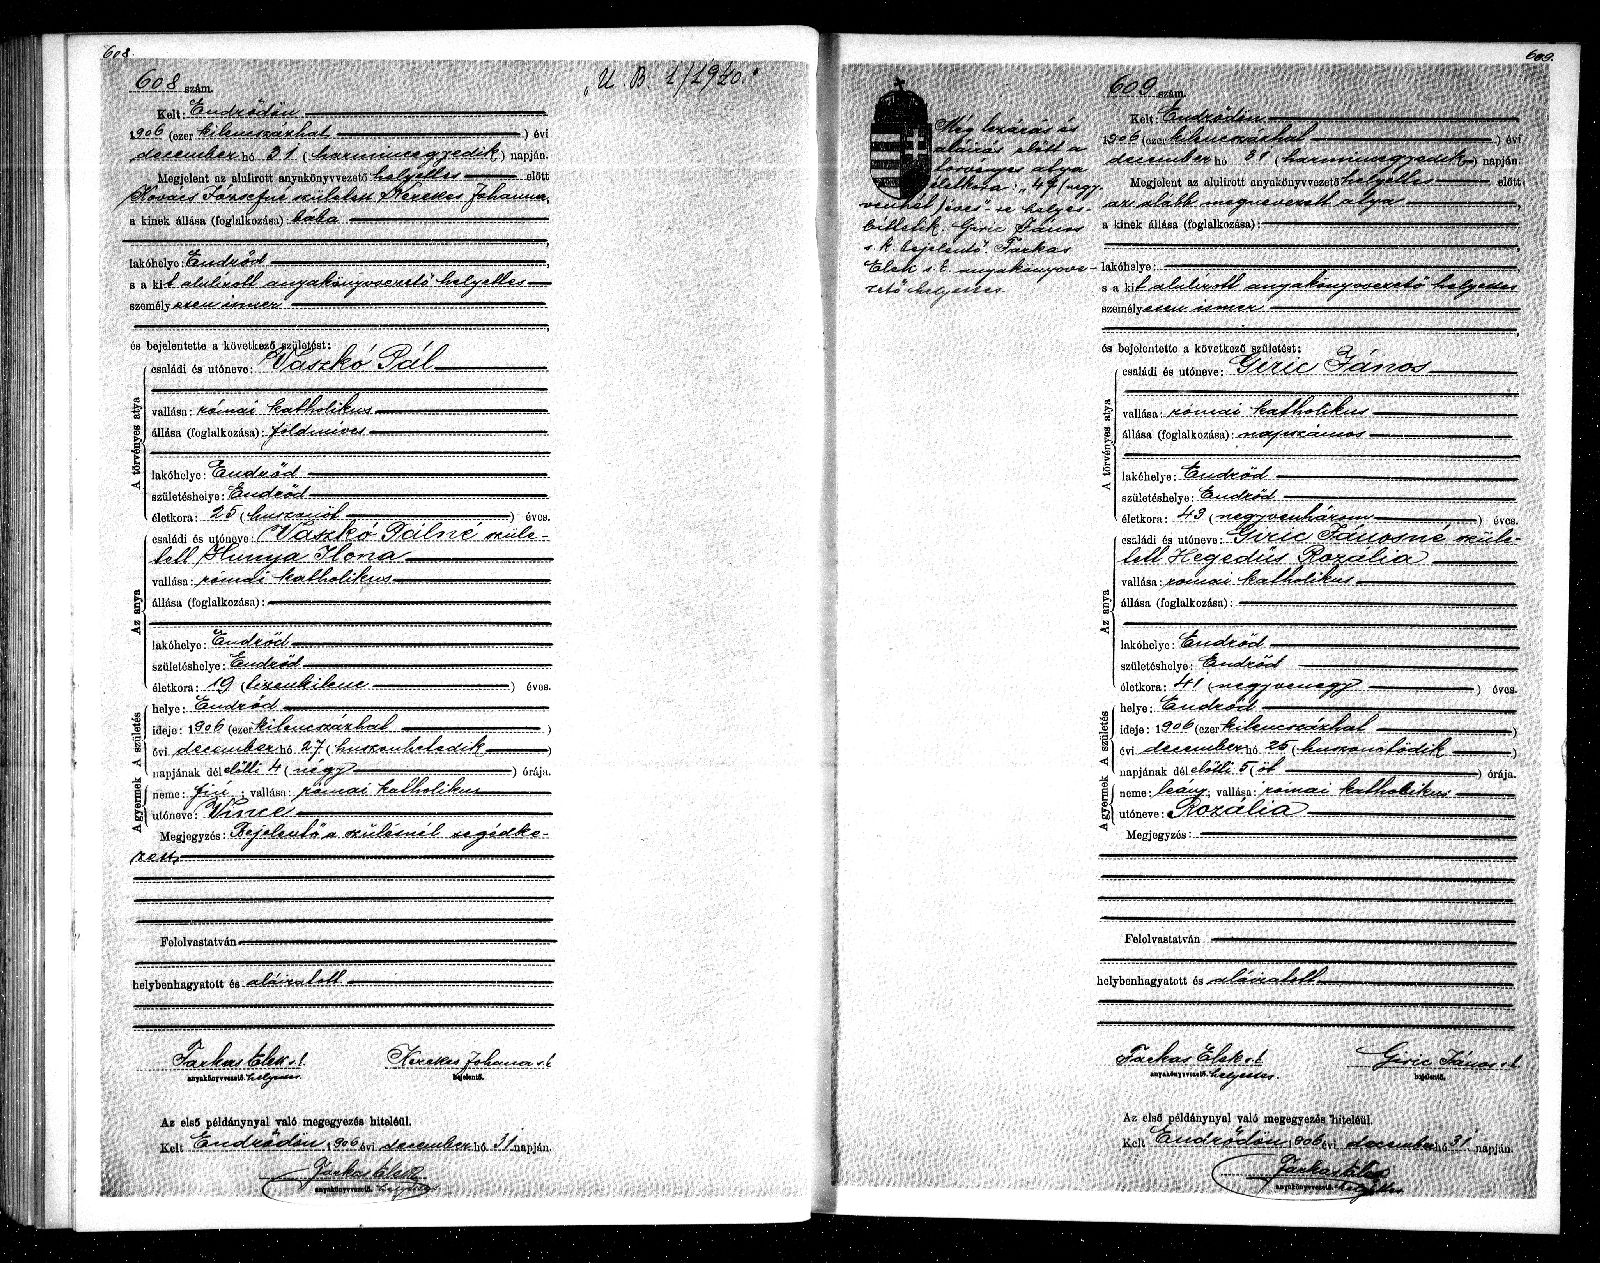 608.
608 szám.
„U B. 1/1940."
Kelt: Endrődön
1906 (ezer kilenczszázhat) évi
december hó 31 (harminczegyedik) napján.
Megjelent az alulirott anyakönyvvezető helyettes előtt
Kovács Józsefné született Kerekes Johanna,
a kinek állása (foglalkozása): bába
lakóhelye: Endrőd
s a kit alulirott anyakönyvvezető helyettes
személyesen ismer
és bejelentette a következő születést:
A törvényes atya
családi és utóneve: Vaszkó Pál
vallása: római katholikus
állása (foglalkozása): földmíves
lakóhelye: Endrőd
születéshelye: Endrőd
életkora: 25 (huszonöt) éves.
Az anya
családi és utóneve: Vaszkó Pálné szüle-
tett Hunya Ilona
vallása: római katholikus
állása (foglalkozása):
lakóhelye: Endrőd
születéshelye: Endrőd
életkora: 19 (tizenkilenc) éves.
A születés
helye: Endrőd
ideje: 1906 (ezer kilenczszázhat)
évi december hó 27 (huszonhetedik)
napjának dél előtti 4 (négy) órája.
A gyermek
neme: fiú; vallása: római katholikus
utóneve: Vince
Megjegyzés: Bejelentő a szülésnél segédke-
zett,
Felolvastatván
helybenhagyatott és aláiratott
Farkas Elek s.k. Kerekes Johanna s.k.
anyakönyvvezető. helyettes bejelentő.
Az első példánynyal való megegyezés hiteléül.
Kelt Endrődön, 1906 évi december hó 31 napján.
Farkas Elek
anyakönyvvezető. helyettes
609.
609 szám.
Még lezárás és
aláírás előtt a
törvényes atya
életkora: „47 (negy-
venhét) éves"-re helyes-
bíttetik. Giric János
s. k. bejelentő. Farkas
Elek s. k. anyakönyvve-
zető helyettes.
Kelt: Endrődön
1906 (ezer kilenczszázhat) évi
december hó 31 (harminczegyedik) napján.
Megjelent az alulirott anyakönyvvezető helyettes előtt
az alább megnevezett atya,
a kinek állása (foglalkozása):
lakóhelye:
s a kit alulirott anyakönyvvezető helyettes
személyesen ismer
és bejelentette a következő születést:
A törvényes atya
családi és utóneve: Giric János
vallása: római katholikus
állása (foglalkozása): napszámos
lakóhelye: Endrőd
születéshelye: Endrőd
életkora: 43 (negyvenhárom) éves.
Az anya
családi és utóneve: Giric Jánosné szüle-
tett Hegedűs Rozália
vallása: római katholikus
állása (foglalkozása):
lakóhelye: Endrőd
születéshelye: Endrőd
életkora: 41 (negyvenegy) éves.
A születés
helye: Endrőd
ideje: 1906 (ezer kilenczszázhat)
évi december hó 25 (huszonötödik)
napjának dél előtti 5 (öt) órája.
A gyermek
neme: leány; vallása: római katholikus
utóneve: Rozália
Megjegyzés:
Felolvastatván
helybenhagyatott és aláiratott
Farkas Elek s.k. Giric János s.k.
anyakönyvvezető. helyettes. bejelentő.
Az első példánynyal való megegyezés hiteléül.
Kelt Endrődön 1906 évi december hó 31 napján.
Farkas Elek
anyakönyvvezető. helyettes